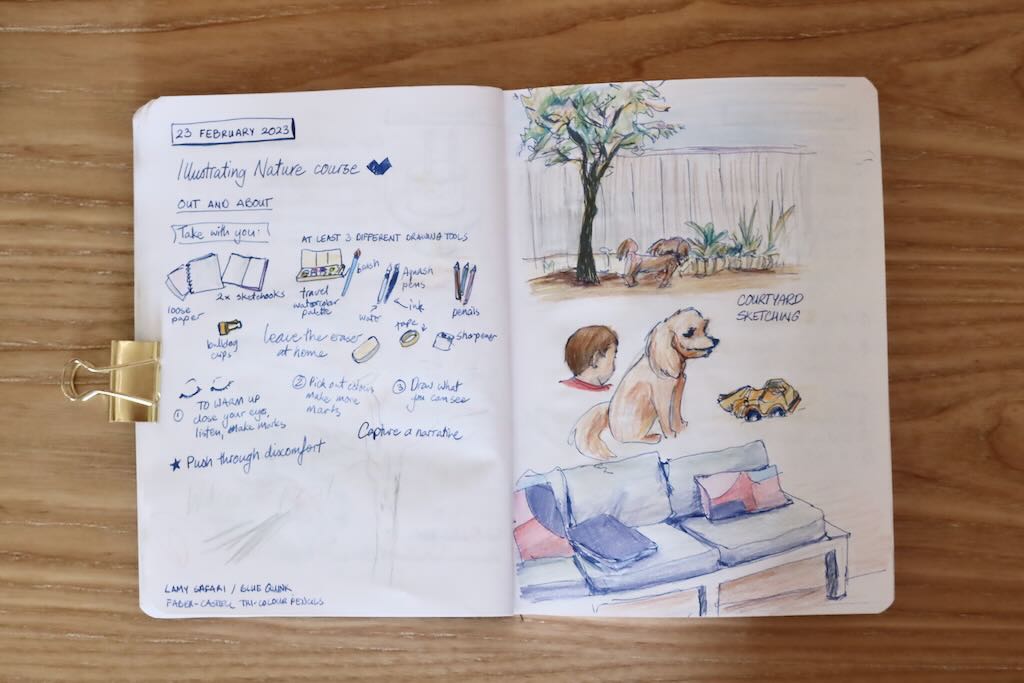 23 FEBRUARY 2023
Illustrating Nature course
OUT AND ABOUT
Take with you:
AT LEAST 3 DIFFERENT DRAWING TOOLS
loose
paper
2x sketchbooks
travel
watercolor
palette
brush
Aquash
pens
water
ink
pencils
bulldog
clips
Leave the eraser
at home
tape
sharpener
① TO WARM UP
close your eye,
listen, make marks
② Pick out colours
make more
marks
③ Draw what
you can see
Capture a narrative
★ Push through discomfort
LAMY SAFARI / BLUE QUINK
FABER-CASTELL TRI-COLOUR PENCILS
COURTYARD
SKETCHING